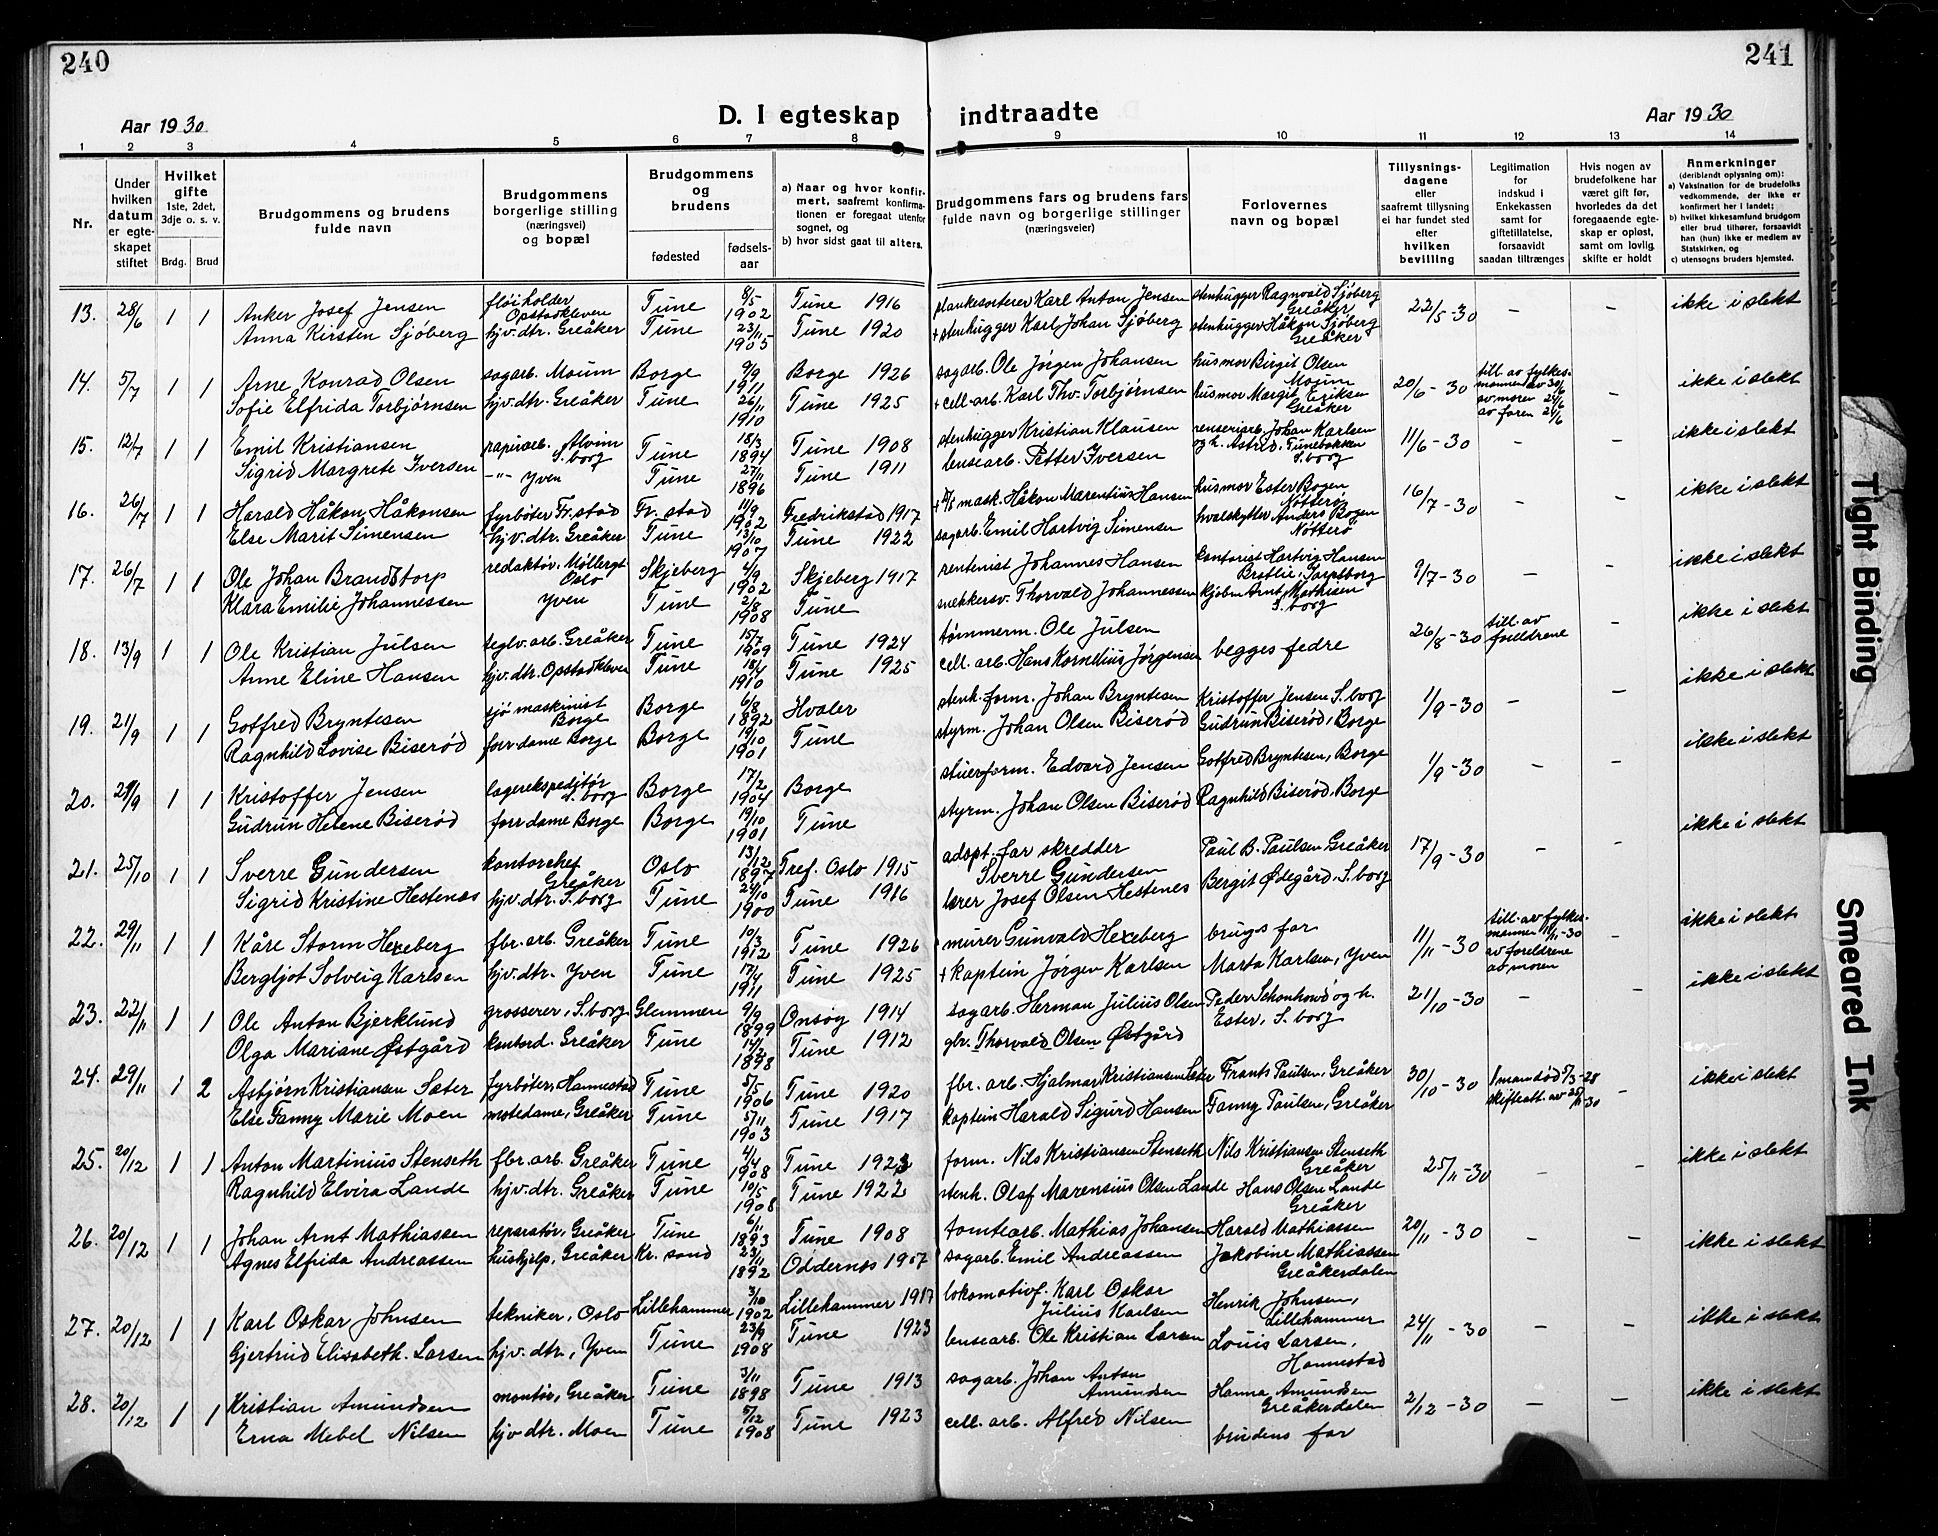 240
241
D. I egteskap indtraadte
Aar 1930
Aar 1930
1 2 3 4 5 6 7 8 9 10 11 12 13 14
Nr.
Under hvilken datum er egteskapet stiftet
Hvilket gifte
1ste, 2det, 3dje o. s. v.
Brdg. Brud
Brudgommens og brudens fulde navn
Brudgommens borgerlige stilling (næringsvei) og bopæl
Brudgommens og brudens
fødested fødselsaar
a) Naar og hvor konfirmert, saafremt konfirmationen er foregaat utenfor sognet, og
b) hvor sidst gaat til alters.
Brudgommens fars og brudens fars fulde navn og borgerlige stillinger (næringsveier)
Forlovernes navn og bopæl
Tillysningsdagene eller saafremt tillysning ei har fundet sted efter hvilken bevilling
Legitimation for indskud i Enkekassen samt for giftetillatelse, forsaavidt saadan tiltrænges
Hvis nogen av brudefolkene har været gift før, hvorledes da det foregaaende egteskap er opløst, samt om lovlig skifte er holdt
Anmerkninger (deriblandt oplysning om):
a) Vaksination for de brudefolks vedkommende, der ikke er konfirmert her i landet;
b) hvilket kirkesamfund brudgom eller brud tilhører, forsaavidt han (hun) ikke er medlem av Statskirken, og
c) utensogns bruders hjemsted.
13. 28/6 1 1 Anker Josef Jensen fløiholder Opstadkleven Tune 8/5 1902 Tune 1916 plankesorterer Karl Anton Jensen stenhugger Ragnvald Sjöberg Greåker 22/5-30 – – ikke i slekt
Anna Kirsten Sjöberg hjv. dtr. Greåker Tune 23/11 1905 Tune 1920 + stenhugger Karl Johan Sjöberg stenhugger Håkon Sjöberg Greåker
14. 5/7 1 1 Arne Konrad Olsen sagarb. Moum Borge 9/9 1911 Borge 1926 sagarb. Ole Jörgen Johansen husmor Birgit Olsen Moum 20/6-30 till. av fylkesmannen av 30/6 av moren 24/6 av faren 24/6 – ikke i slekt
Sofie Elfrida Torbjørnsen hjv. dtr. Greåker Tune 26/11 1910 Tune 1925 + cell. arb. Karl Thv. Torbjørnsen husmor Margit Eriksen Greåker
15. 12/7 1 1 Emil Kristiansen papirarb. Alvim S.borg Tune 18/3 1894 Tune 1908 stenhugger Kristian Klausen renseriarb. Johan Karlsen og h. Astrid, Tunebakken S.borg 11/6-30 – – ikke i slekt
Sigrid Margrete Iversen -"- Yven Tune 27/11 1896 Tune 1911 lensearb. Petter Iversen
16. 26/7 1 1 Harald Håkon Håkonsen fyrböter Fr.stad Fr.stad 11/9 1902 Fredrikstad 1917 + mask. Håkon Marentius Hansen husmor Ester Bogen Nötterö 16/7-30 – – ikke i slekt
Else Marit Simensen hjv. dtr. Greåker Tune 13/10 1907 Tune 1922 sagarb. Emil Hartvig Simensen hvalskytter Anders Bogen Nötterö
17. 26/7 1 1 Ole Johan Brandstorp redaktør. Møllergt Oslo Skjeberg 4/9 1902 Skjeberg 1917 rentenist Johannes Hansen kontorist Hartvig Hansen Bratlie, Sarpsborg 9/7-30 – – ikke i slekt
Klara Emilie Johannessen Yven Tune 2/8 1908 Tune snekkersv. Thorvald Johannessen kjøbm Arnt Mathisen S.borg
18. 13/9 1 1 Ole Kristian Julsen teglv. arb. Greåker Tune 15/7 1909 Tune 1924 tømmerm. Ole Julsen begges fedre 26/8-30 till. av foreldrene – ikke i slekt
Anne Eline Hansen hjv. dtr. Opstadkleven Tune 18/4 1910 Tune 1925 cell. arb. Hans Kornelius Jørgensen
19. 21/9 1 1 Gotfred Bryntesen sjömaskinist Borge Borge 6/8 1892 Hvaler stenh. form. Johan Bryntesen Kristoffer Jensen S.borg 1/9-30 – – ikke i slekt
Ragnhild Lovise Biserød forr.dame Borge Borge 19/10 1901 Tune styrm. Johan Olsen Biserød Gudrun Biserød, Borge
20. 21/9 1 1 Kristoffer Jensen lagerekspeditör S.borg Borge 17/2 1904 Borge stuerform. Edvard Jensen Gotfred Bryntesen, Borge 1/9-30 – – ikke i slekt
Gudrun Helene Biserød forr.dame Borge Borge 19/10 1901 Tune styrm. Johan Olsen Biserød Ragnhild Biserød, Borge
21. 25/10 1 1 Sverre Gundersen kontorchef Greåker Oslo 13/12 1897 Tref. Oslo 1915 adopt. far skredder Sverre Gundersen Paul B. Paulsen, Greåker 17/9-30 – – ikke i slekt
Sigrid Kristine Hestenes hjv. dtr. S.borg Tune 24/10 1900 Tune 1916 lærer Josef Olsen Hestenes Bergit Ødegård, S.borg
22. 29/11 1 1 Kåre Storm Hexeberg fbr. arb. Greåker Tune 10/3 1912 Tune 1926 murer Gunvald Hexeberg brugs far 11/11-30 till. av fylkesmannen 18/11-30 av foreldrene av moren – ikke i slekt
Bergljot Solveig Karlsen hjv. dtr. Yven Tune 17/4 1911 Tune 1925 + kaptein Jørgen Karlsen Marta Karlsen, Yven
23. 22/11 1 1 Ole Anton Bjerklund grosserer, S.borg Glemmen 9/9 1899 Onsøy 1914 sagarb. Herman Julius Olsen Peder Schonhowd og h. Ester, S.borg 21/10-30 – – ikke i slekt
Olga Mariane Østgård kontord. Greåker Tune 14/2 1898 Tune 1912 gbr. Thorvald Olsen Østgård
24. 29/11 1 2 Asbjørn Kristiansen Sæter fyrböter, Hannestad Tune 5/5 1906 Tune 1920 fbr. arb. Hjalmar Kristiansen Sæter Frants Paulsen, Greåker 30/10-30 1 man död 5/3-28 skifteatt. av 25/11-30 – ikke i slekt
Else Fanny Marie Moen motedame, Greåker Tune 5/11 1903 Tune 1917 kaptein Harald Sigurd Hansen Fanny Paulsen, Greåker
25. 20/12 1 1 Anton Martinius Stenseth fbr. arb. Greåker Tune 4/4 1908 Tune 1923 form. Nils Kristiansen Stenseth Nils Kristiansen Stenseth Greåker 25/11-30 – – ikke i slekt
Ragnhild Elvira Lande hjv. dtr. Greåker Tune 10/5 1908 Tune 1922 stenh. Olaf Marensius Olsen Lande Hans Olsen Lande Greåker
26. 20/12 1 1 Johan Arnt Mathiassen reparatør, Greåker Tune 6/11 1893 Tune 1908 tomtearb. Mathias Johansen Harald Mathiassen 20/11-30 – – ikke i slekt
Agnes Elfrida Andreassen hushjelp, Greåker Kr. sand 23/11 1892 Oddernes 1907 sagarb. Emil Andreassen Jakobine Mathiassen Greåkerdalen
27. 20/12 1 1 Karl Oskar Johnsen tekniker, Oslo Lillehammer 3/10 1902 Lillehammer 1917 lokomotivf. Karl Oskar Julius Karlsen Henrik Johnsen, Lillehammer 24/11-30 – – ikke i slekt
Gjertrud Elisabeth Larsen hjv. dtr, Yven Tune 23/9 1908 Tune 1923 lensearb. Ole Kristian Larsen Louis Larsen, Hannestad
28. 20/12 1 1 Kristian Amundsen montør, Greåker Tune 3/11 1898 Tune 1913 sagarb. Johan Anton Amundsen Hanna Amundsen Greåkerdalen 2/12-30 – – ikke i slekt
Erna Mebel Nilsen hjv dtr. Moen Tune 5/12 1908 Tune 1923 cell. arb. Alfred Nilsen brudens far
Tight Binding
Smeared Ink